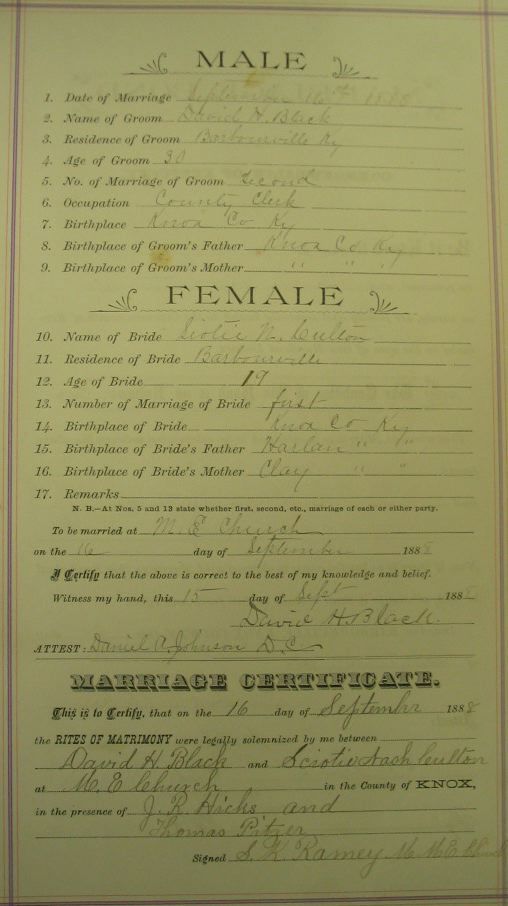 MALE
1. Date of Marriage September 16th 1888
2. Name of Groom David H. Black
3. Residence of Groom Barbourville Ky
4. Age of Groom 30
5. No. of Marriage of Groom Second
6. Occupation County Clerk
7. Birthplace Knox Co Ky
8. Birthplace of Groom's Father Knox Co Ky
9. Birthplace of Groom's Mother " " "
FEMALE
10. Name of Bride N. Culton
11. Residence of Bride Barbourville
12. Age of Bride 19
13. Number of Marriage of Bride first
14. Birthplace of Bride Knox Co Ky
15. Birthplace of Bride's Father Harlan " "
16. Birthplace of Bride's Mother Clay " "
17. Remarks
N. B.—At Nos. 5 and 13 state whether first, second, etc., marriage of each or either party.
To be married at M. E Church
on the 16 day of September 1888
I Certify that the above is correct to the best of my knowledge and belief.
Witness my hand, this 15 day of Sept 1888
David H. Black.
ATTEST: Daniel A. Johnson D. C
MARRIAGE CERTIFICATE.
This is to Certify, that on the 16 day of September 1888
the RITES OF MATRIMONY were legally solemnized by me between
David H. Black and Sciotie Nash Culton
at M. E Church in the County of KNOX,
in the presence of J. R. Hicks and
Thomas Pitzer
Signed S. K. Ramey M. M. E Church